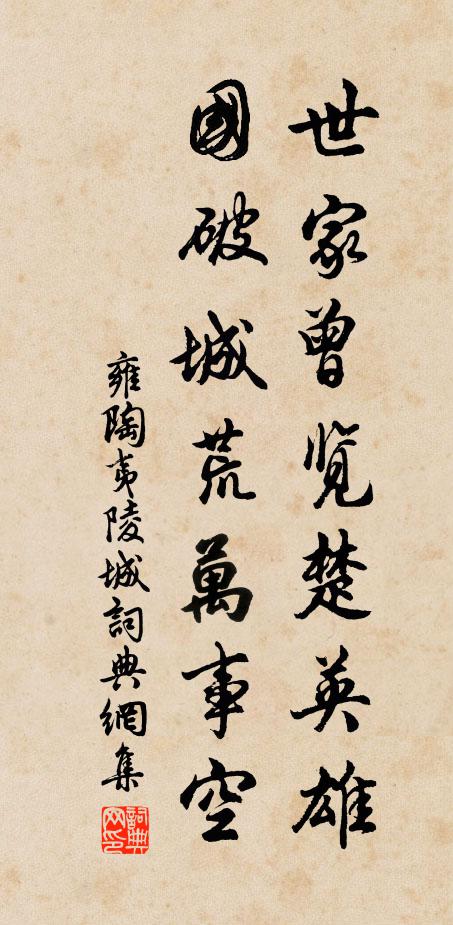 世家曾览楚英雄
國破城荒萬事空
雍陶夷陵城詞典網集
詞典網印